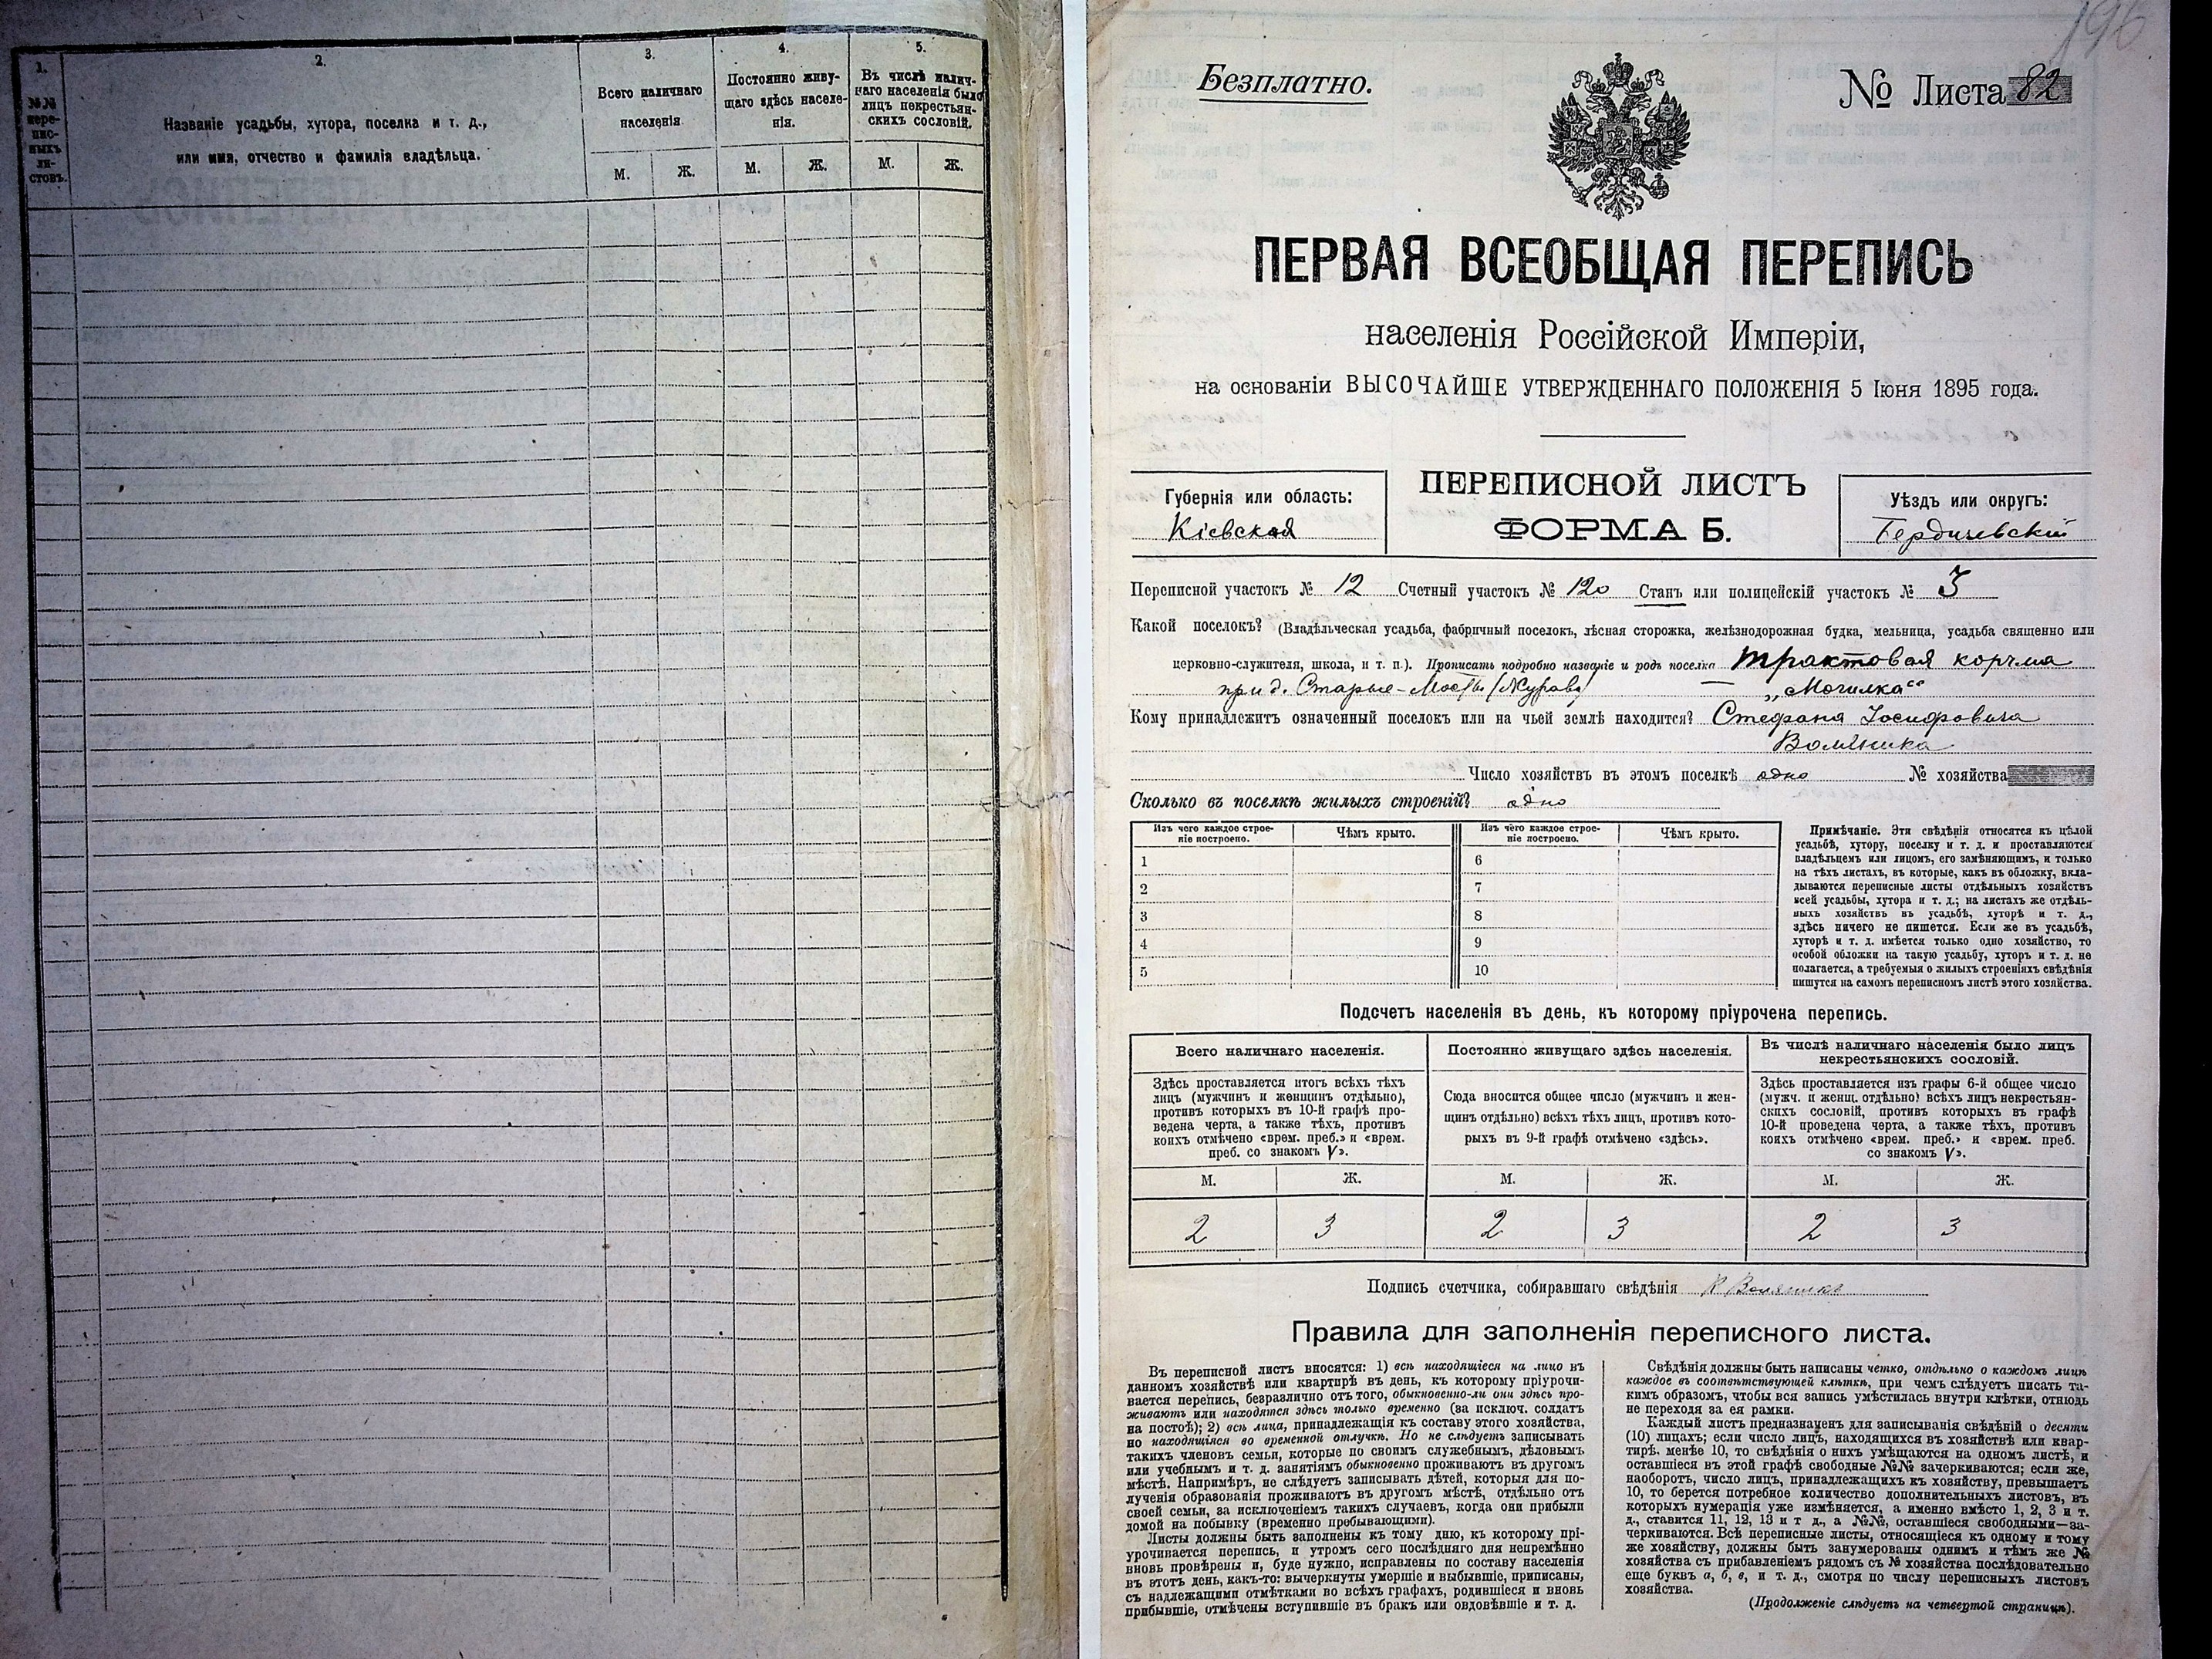 1.
№№ пере-
пис-
ныхъ
ли-
стовъ.
2.
Названіе усадьбы, хутора, поселка и т. д.,
или имя, отчество и фамилія владѣльца.
3.
Всего наличнаго
населенія
4.
Постоянно живу-
щаго здѣсь населе-
нія.
5.
Въ числѣ налич-
наго населенія было
лицъ некрестьян-
скихъ сословій.
М. Ж. М. Ж. М. Ж.
196
Безплатно.
№ Листа 82
ПЕРВАЯ ВСЕОБЩАЯ ПЕРЕПИСЬ
населенія Россійской Имперіи,
на основаніи ВЫСОЧАЙШЕ УТВЕРЖДЕННАГО ПОЛОЖЕНІЯ 5 Іюня 1895 года.
Губернія или область:
Кіевская
ПЕРЕПИСНОЙ ЛИСТЪ
ФОРМА Б.
Уѣздъ или округъ:
Бердичевскій
Переписной участокъ № 12 Счетный участокъ № 120 Станъ или полицейскій участокъ № 3
Какой поселокъ? (Владѣльческая усадьба, фабричный поселокъ, лѣсная сторожка, желѣзнодорожная будка, мельница, усадьба священно или
церковно-служителя, школа, и т. п.). Прописать подробно названіе и родъ поселка трактовая корчма
при д. Старые-Мосты „Могилка“
Кому принадлежитъ означенный поселокъ или на чьей землѣ находится? Стефана Іосифовича
Число хозяйствъ въ этомъ поселкѣ одно № хозяйства
Сколько въ поселкѣ жилыхъ строеній? одно
Изъ чего каждое строе-
ніе построено.
Чѣмъ крыто.
Изъ чего каждое строе-
ніе построено.
Чѣмъ крыто.
1 6
2 7
3 8
4 9
5 10
Примѣчаніе. Эти свѣдѣнія относятся къ цѣлой
усадьбѣ, хутору, поселку и т. д. и проставляются
владѣльцемъ или лицомъ, его замѣняющимъ, и только
на тѣхъ листахъ, въ которые, какъ въ обложку, вкла-
дываются переписные листы отдѣльныхъ хозяйствъ
всей усадьбы, хутора и т. д.; на листахъ же отдѣль-
ныхъ хозяйствъ въ усадьбѣ, хуторѣ и т. д.,
здѣсь ничего не пишется. Если же въ усадьбѣ,
хуторѣ и т. д. имѣется только одно хозяйство, то
особой обложки на такую усадьбу, хуторъ и т. д. не
полагается, а требуемыя о жилыхъ строеніяхъ свѣдѣнія
пишутся на самомъ переписномъ листѣ этого хозяйства.
Подсчетъ населенія въ день, къ которому пріурочена перепись.
Всего наличнаго населенія.
Здѣсь проставляется итогъ всѣхъ тѣхъ
лицъ (мужчинъ и женщинъ отдѣльно),
противъ которыхъ въ 10-й графѣ про-
ведена черта, а также тѣхъ, противъ
коихъ отмѣчено «врем. преб.» и «врем.
преб. со знакомъ V».
Постоянно живущаго здѣсь населенія.
Сюда вносится общее число (мужчинъ и жен-
щинъ отдѣльно) всѣхъ тѣхъ лицъ, противъ кото-
рыхъ въ 9-й графѣ отмѣчено «здѣсь».
Въ числѣ наличнаго населенія было лицъ
некрестьянскихъ сословій.
Здѣсь проставляется изъ графы 6-й общее число
(мужч. и женщ. отдѣльно) всѣхъ лицъ некрестьян-
скихъ сословій, противъ которыхъ въ графѣ
10-й проведена черта, а также тѣхъ, противъ
коихъ отмѣчено «врем. преб.» и «врем. преб.
со знакомъ V».
М. Ж. М. Ж. М. Ж.
2 3 2 3 2 3
Подпись счетчика, собиравшаго свѣдѣнія
Правила для заполненія переписного листа.
Въ переписной листъ вносятся: 1) всѣ находящіеся на лицо въ
данномъ хозяйствѣ или квартирѣ въ день, къ которому пріурочи-
вается перепись, безразлично отъ того, обыкновенно-ли они здѣсь про-
живаютъ или находятся здѣсь только временно (за исключ. солдатъ
на постоѣ); 2) всѣ лица, принадлежащія къ составу этого хозяйства,
но находящіяся во временной отлучкѣ. Но не слѣдуетъ записывать
такихъ членовъ семьи, которые по своимъ служебнымъ, дѣловымъ
или учебнымъ и т. д. занятіямъ обыкновенно проживаютъ въ другомъ
мѣстѣ. Напримѣръ, не слѣдуетъ записывать дѣтей, которыя для по-
лученія образованія проживаютъ въ другомъ мѣстѣ, отдѣльно отъ
своей семьи, за исключеніемъ такихъ случаевъ, когда они прибыли
домой на побывку (временно пребывающими).
Листы должны быть заполнены къ тому дню, къ которому прі-
урочивается перепись, и утромъ сего послѣдняго дня непремѣнно
вновь провѣрены и, буде нужно, исправлены по составу населенія
въ этотъ день, какъ-то: вычеркнуты умершіе и выбывшіе, приписаны,
съ надлежащими отмѣтками во всѣхъ графахъ, родившіеся и вновь
прибывшіе, отмѣчены вступившіе въ бракъ или овдовѣвшіе и т. д.
Свѣдѣнія должны быть написаны четко, отдѣльно о каждомъ лицѣ
каждое въ соотвѣтствующей клѣткѣ, при чемъ слѣдуетъ писать та-
кимъ образомъ, чтобы вся запись умѣстилась внутри клѣтки, отнюдь
не переходя за ея рамки.
Каждый листъ предназначенъ для записыванія свѣдѣній о десяти
(10) лицахъ; если число лицъ, находящихся въ хозяйствѣ или квар-
тирѣ, менѣе 10, то свѣдѣнія о нихъ умѣщаются на одномъ листѣ, и
оставшіеся въ этой графѣ свободные №№ зачеркиваются; если же,
наоборотъ, число лицъ, принадлежащихъ къ хозяйству, превышаетъ
10, то берется потребное количество дополнительныхъ листовъ, въ
которыхъ нумерація уже измѣняется, а именно вмѣсто 1, 2, 3 и т.
д., ставится 11, 12, 13 и т д., а №№, оставшіеся свободными—за-
черкиваются. Всѣ переписные листы, относящіеся къ одному и тому
же хозяйству, должны быть занумерованы однимъ и тѣмъ же №
хозяйства съ прибавленіемъ рядомъ съ № хозяйства послѣдовательно
еще буквъ а, б, в, и т. д., смотря по числу переписныхъ листовъ
хозяйства.
(Продолженіе слѣдуетъ на четвертой страницѣ).